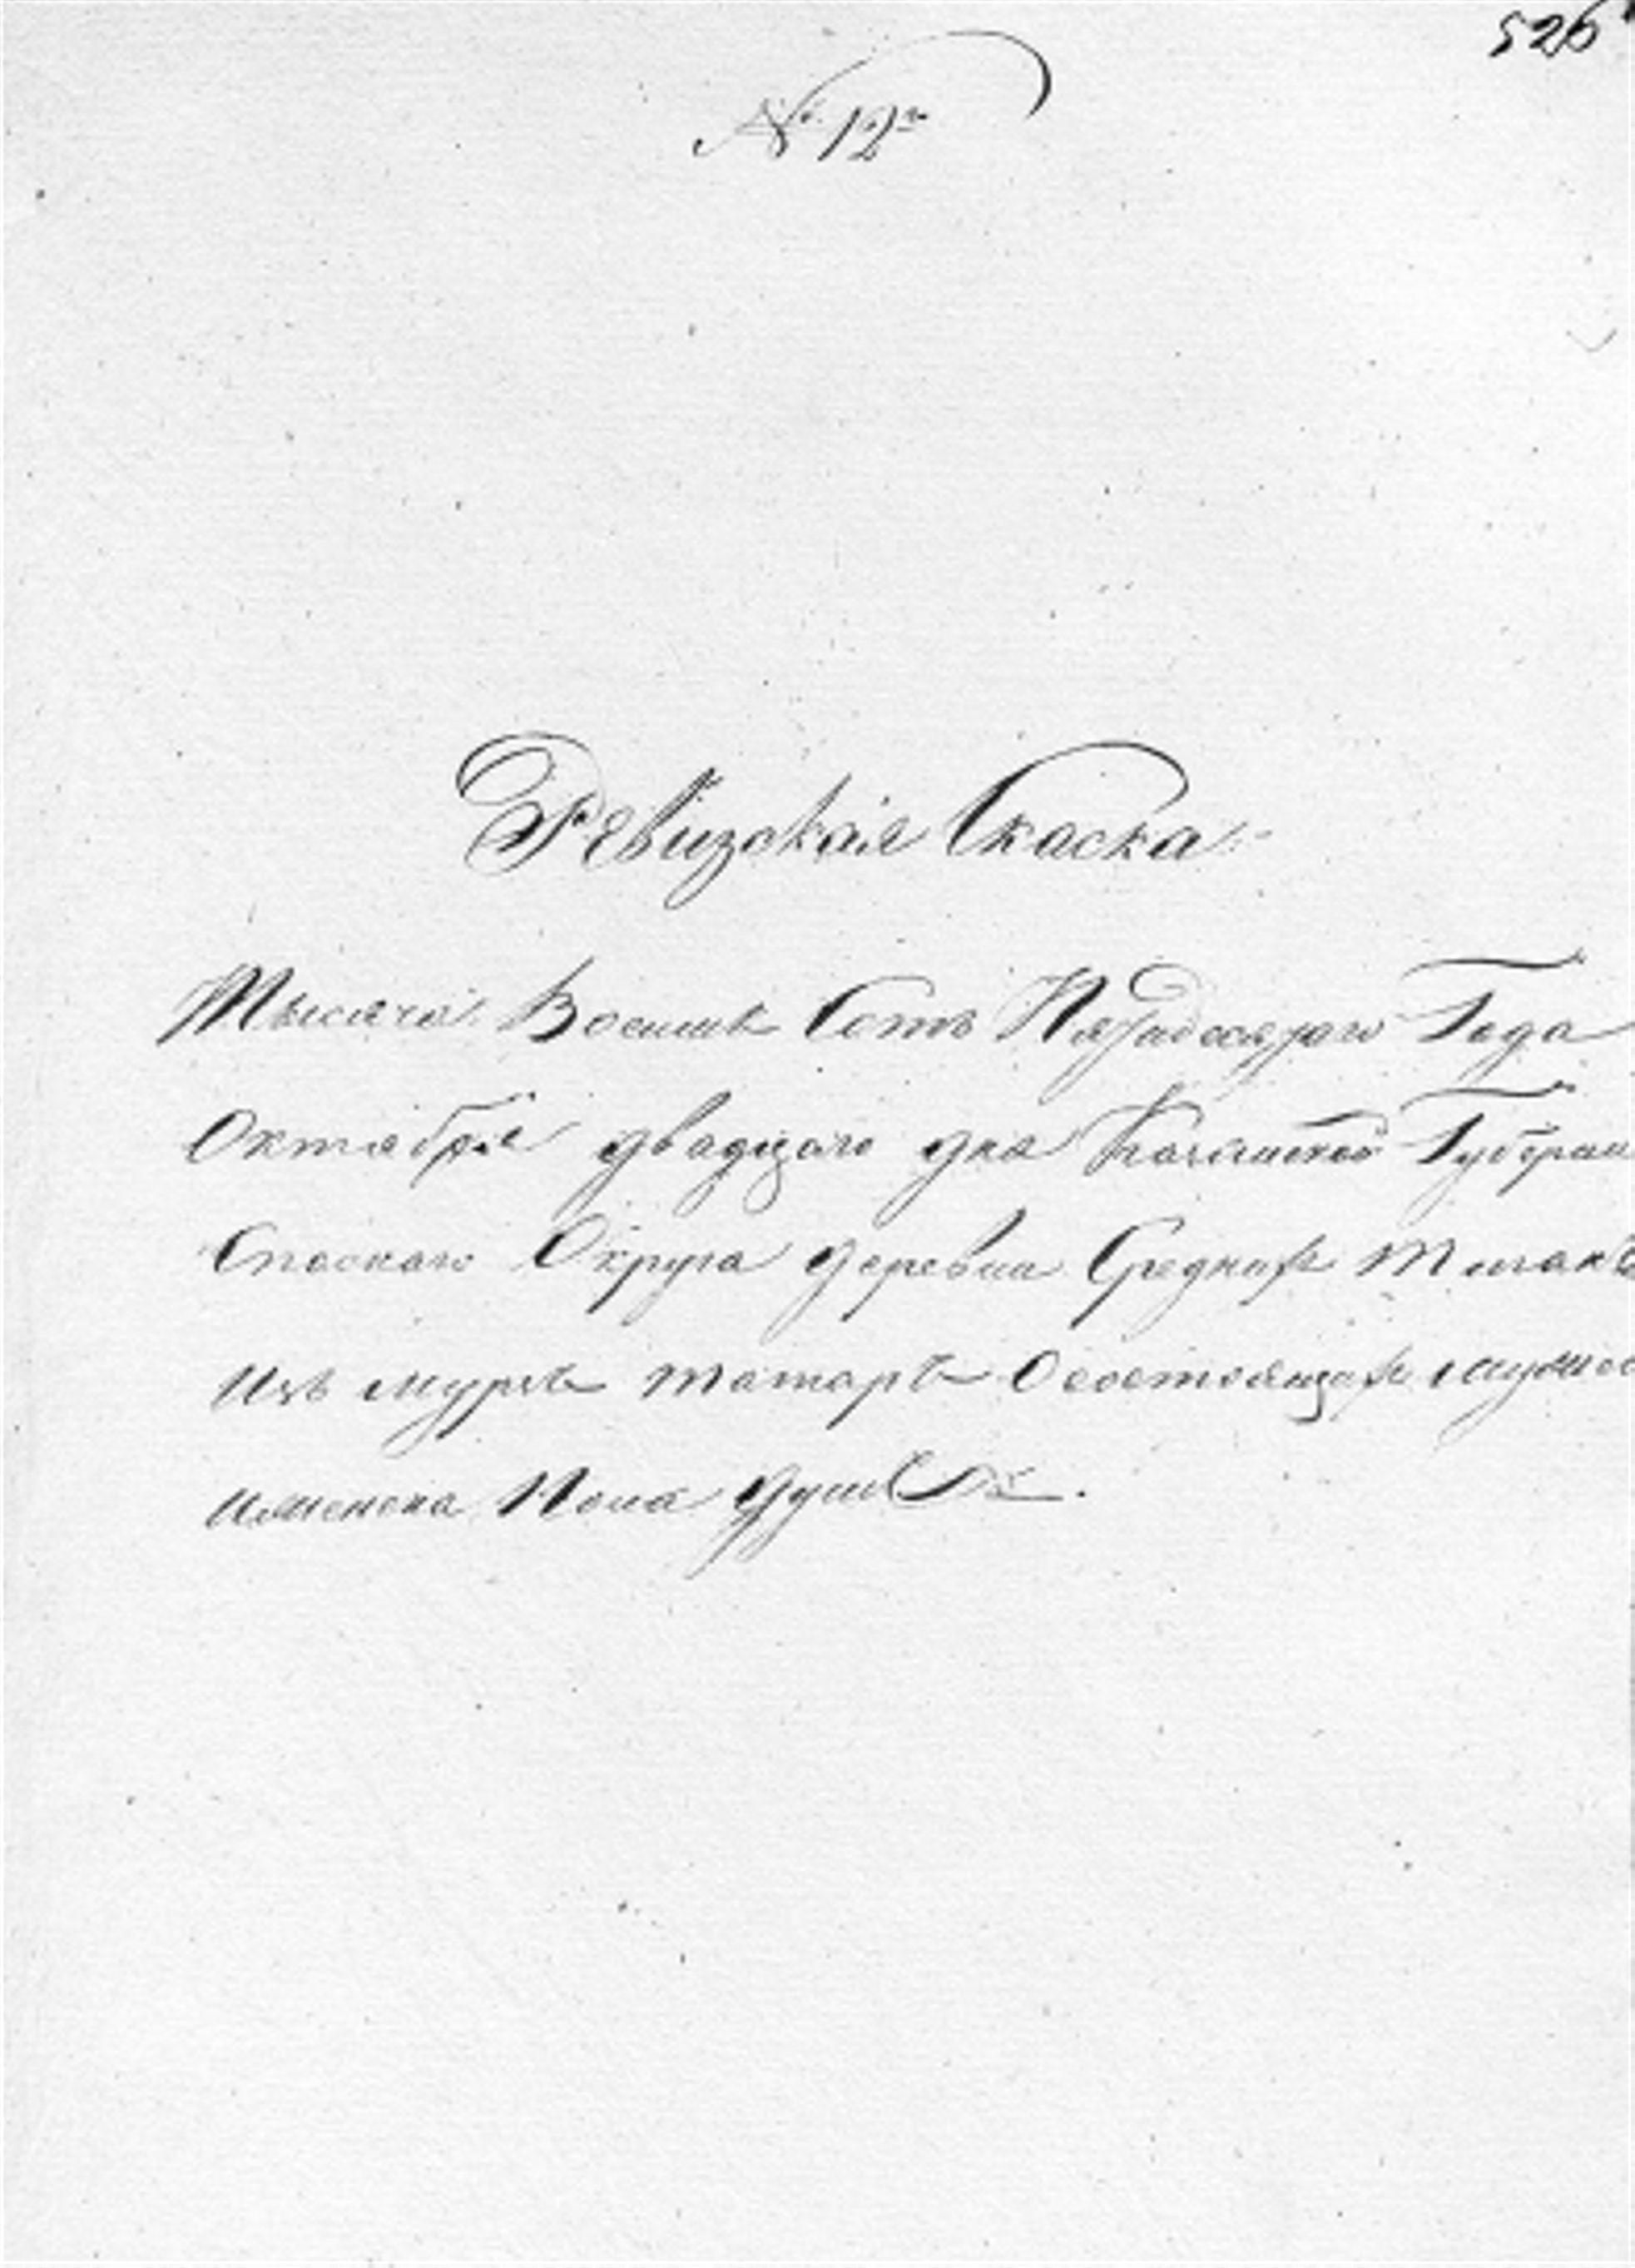 526
№ 12й
Ревизская Скаска
Тысяча Восемь Сотъ Пятидесятаго Года
Октября двадцаго дня Казанской Губернии
Спаскаго Округа деревни Средней Тигане
Изъ мурзъ татаръ О состоящихъ мужес
и женска Пола душъ